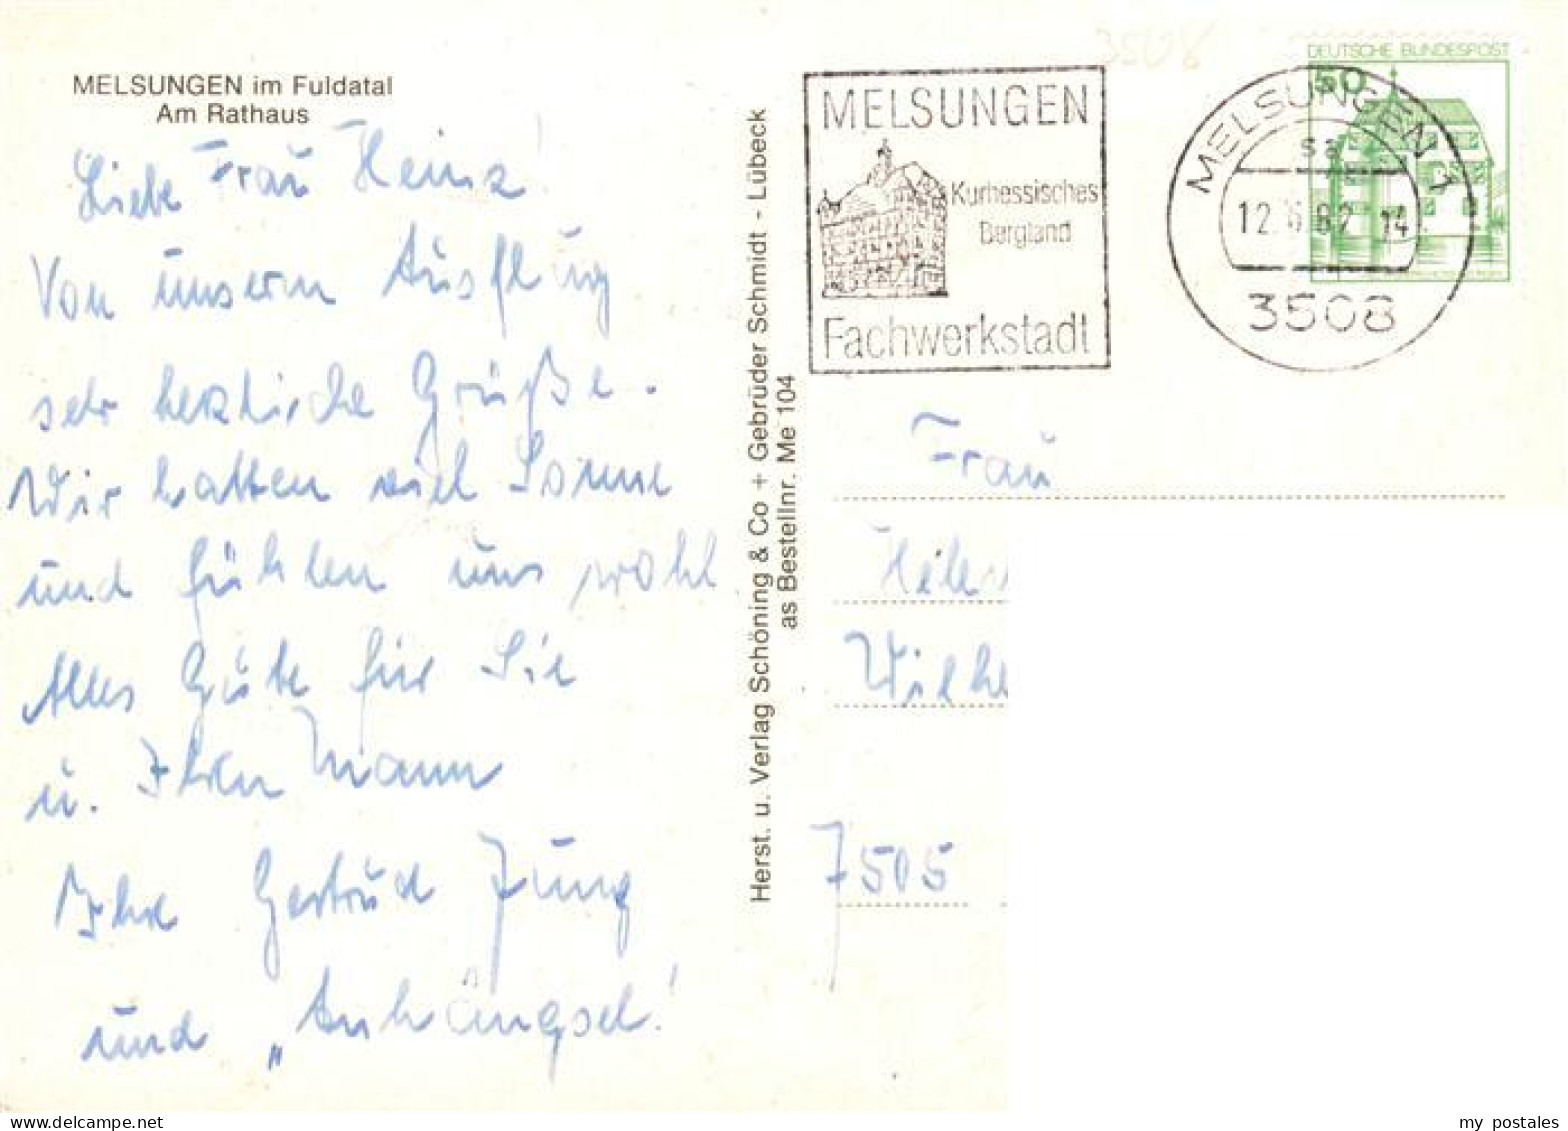 MELSUNGEN im Fuldatal
Am Rathaus
Liebe Frau Heinz!
Von unserm Ausflug
sehr herzliche Grüße.
Wir hatten viel Sonne
und fühlen uns wohl
Alles Gute für Sie
u. Ihren Mann
Ihre Gertrud Jung
und „Anhängsel!
Herst. u. Verlag Schöning & Co + Gebrüder Schmidt - Lübeck
as Bestellnr. Me 104
3508
MELSUNGEN
Kurhessisches
Bergland
Fachwerkstadt
DEUTSCHE BUNDESPOST
50
MELSUNGEN 1
sa
12. .82 14
3508
Frau
Wilhe
7505
my postales